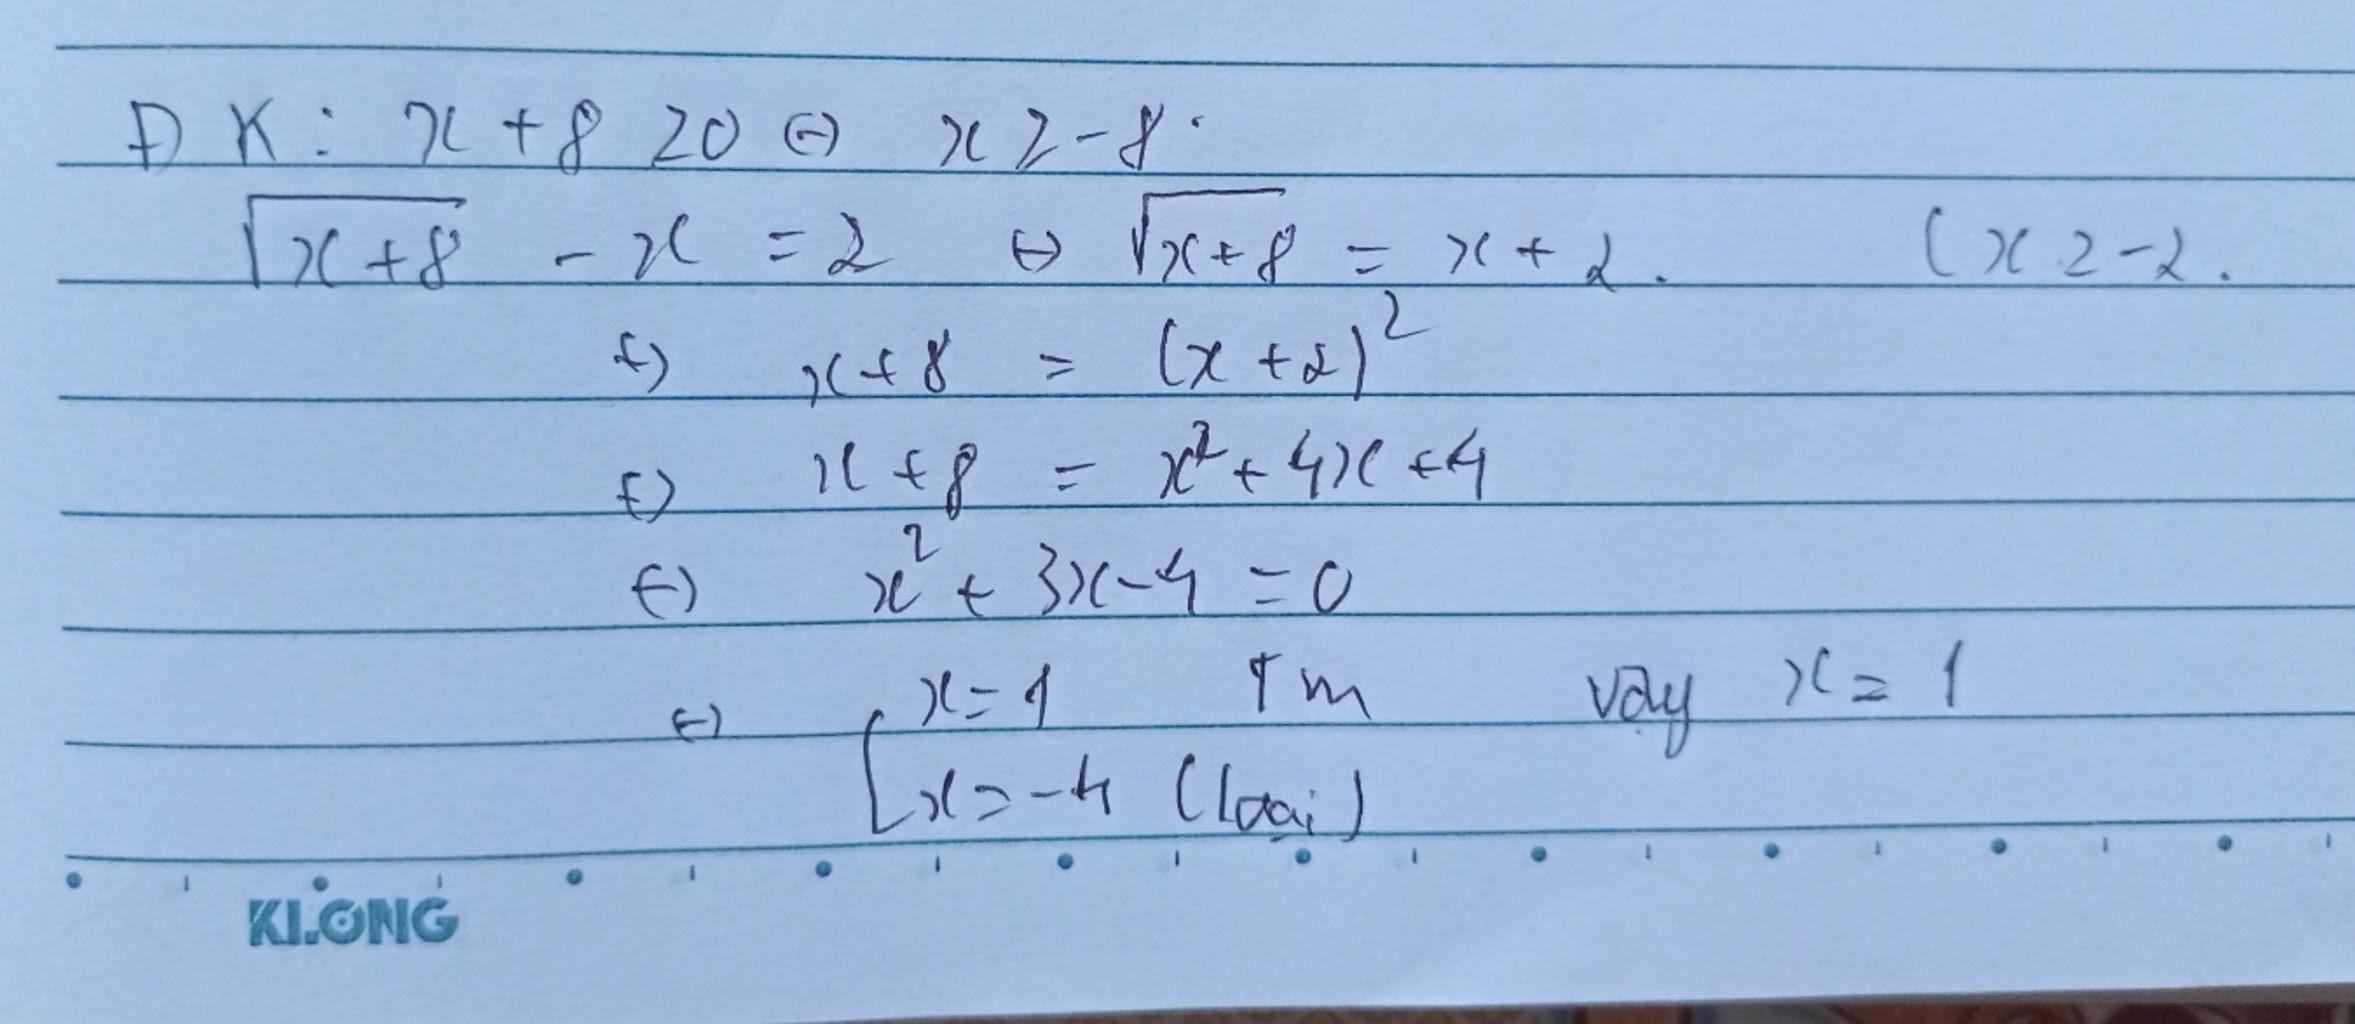 ĐK: x + 8 ≥ 0 ⇔ x ≥ -8.
√(x+8) - x = 2 ⇔ √(x+8) = x + 2. (x ≥ -2.
⇔ x+8 = (x+2)²
⇔ x+8 = x² + 4x + 4
⇔ x² + 3x - 4 = 0
⇔ [ x = 1 Tm vậy x = 1
x = -4 (loại)
KLONG